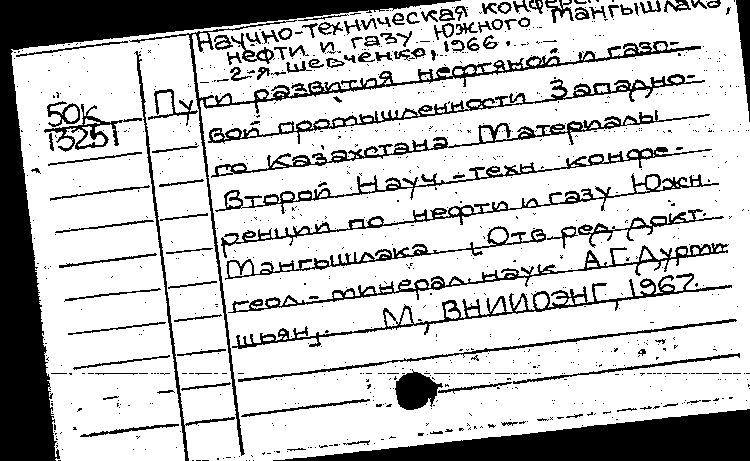 Научно-техническая конфере
нефти и газу Южного Мангышлака,
2-я. Шевченко, 1966.
50К
13251
Пути развития нефтяной и газо-
вой промышленности Западно-
го Казахстана. Материалы
Второй Науч.-техн. конфе-
ренции по нефти и газу Южн.
Мангышлака. [Отв. ред. докт.
геол.-минерал. наук А.Г. Дурми-
шьян]. М., ВНИИОЭНГ, 1967.